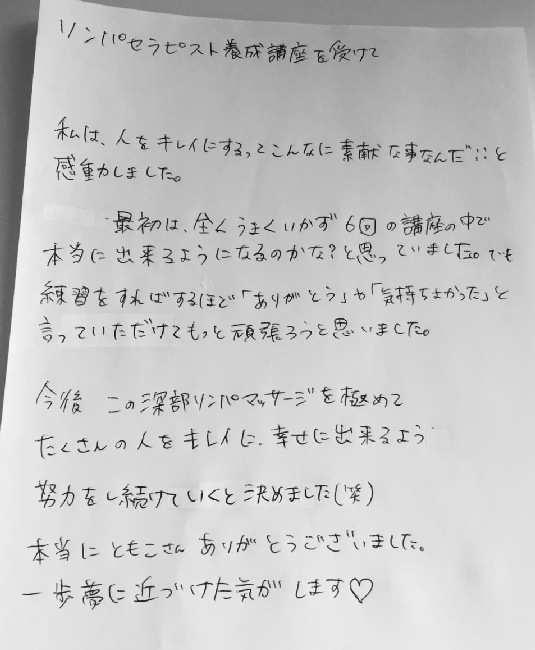 リンパセラピスト養成講座を受けて
私は、人をキレイにするってこんなに素献な事なんだ!!と
感動しました。
最初は、全くうまくいかず6回の講座の中で
本当に出来るようになるのかな?と思っていました。でも
練習をすればするほど「ありがとう」や「気持ちよかった」と
言っていただけてもっと頑張ろうと思いました。
今後 この深部リンパマッサージを極めて
たくさんの人をキレイに、幸せに出来るよう
努力をし続けていくと決めました(笑)
本当にともこさん ありがとうございました。
一歩夢に近づけた気がします♡